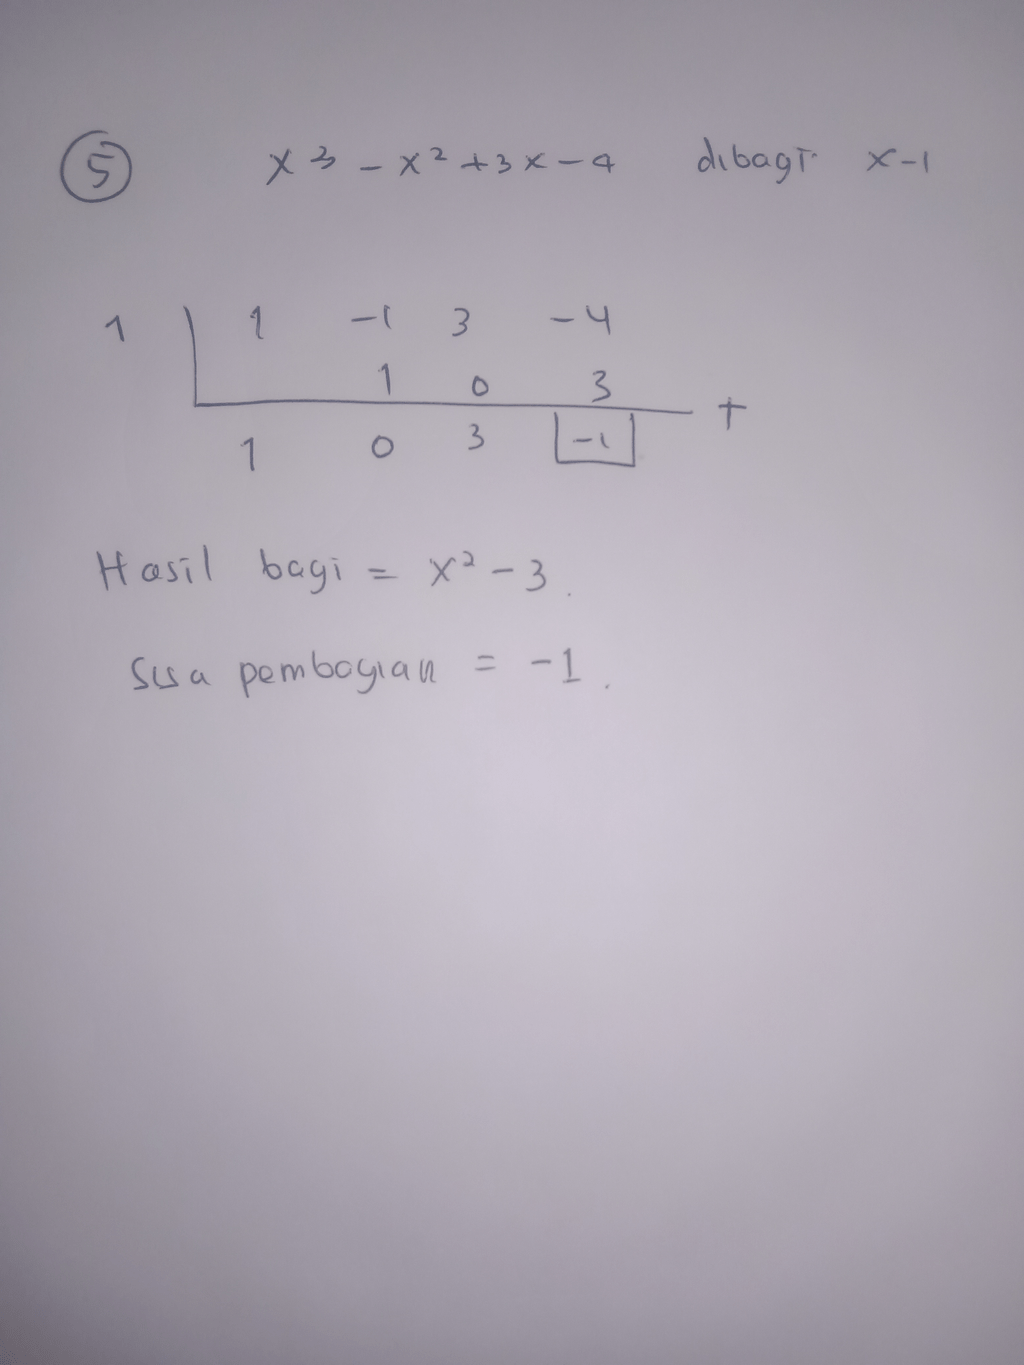 5 x³ - x² + 3x - 4 dibagi x-1
1 1 -1 3 -4
1 0 3 +
1 0 3 -1
Hasil bagi = x² - 3.
Sisa pembagian = -1.